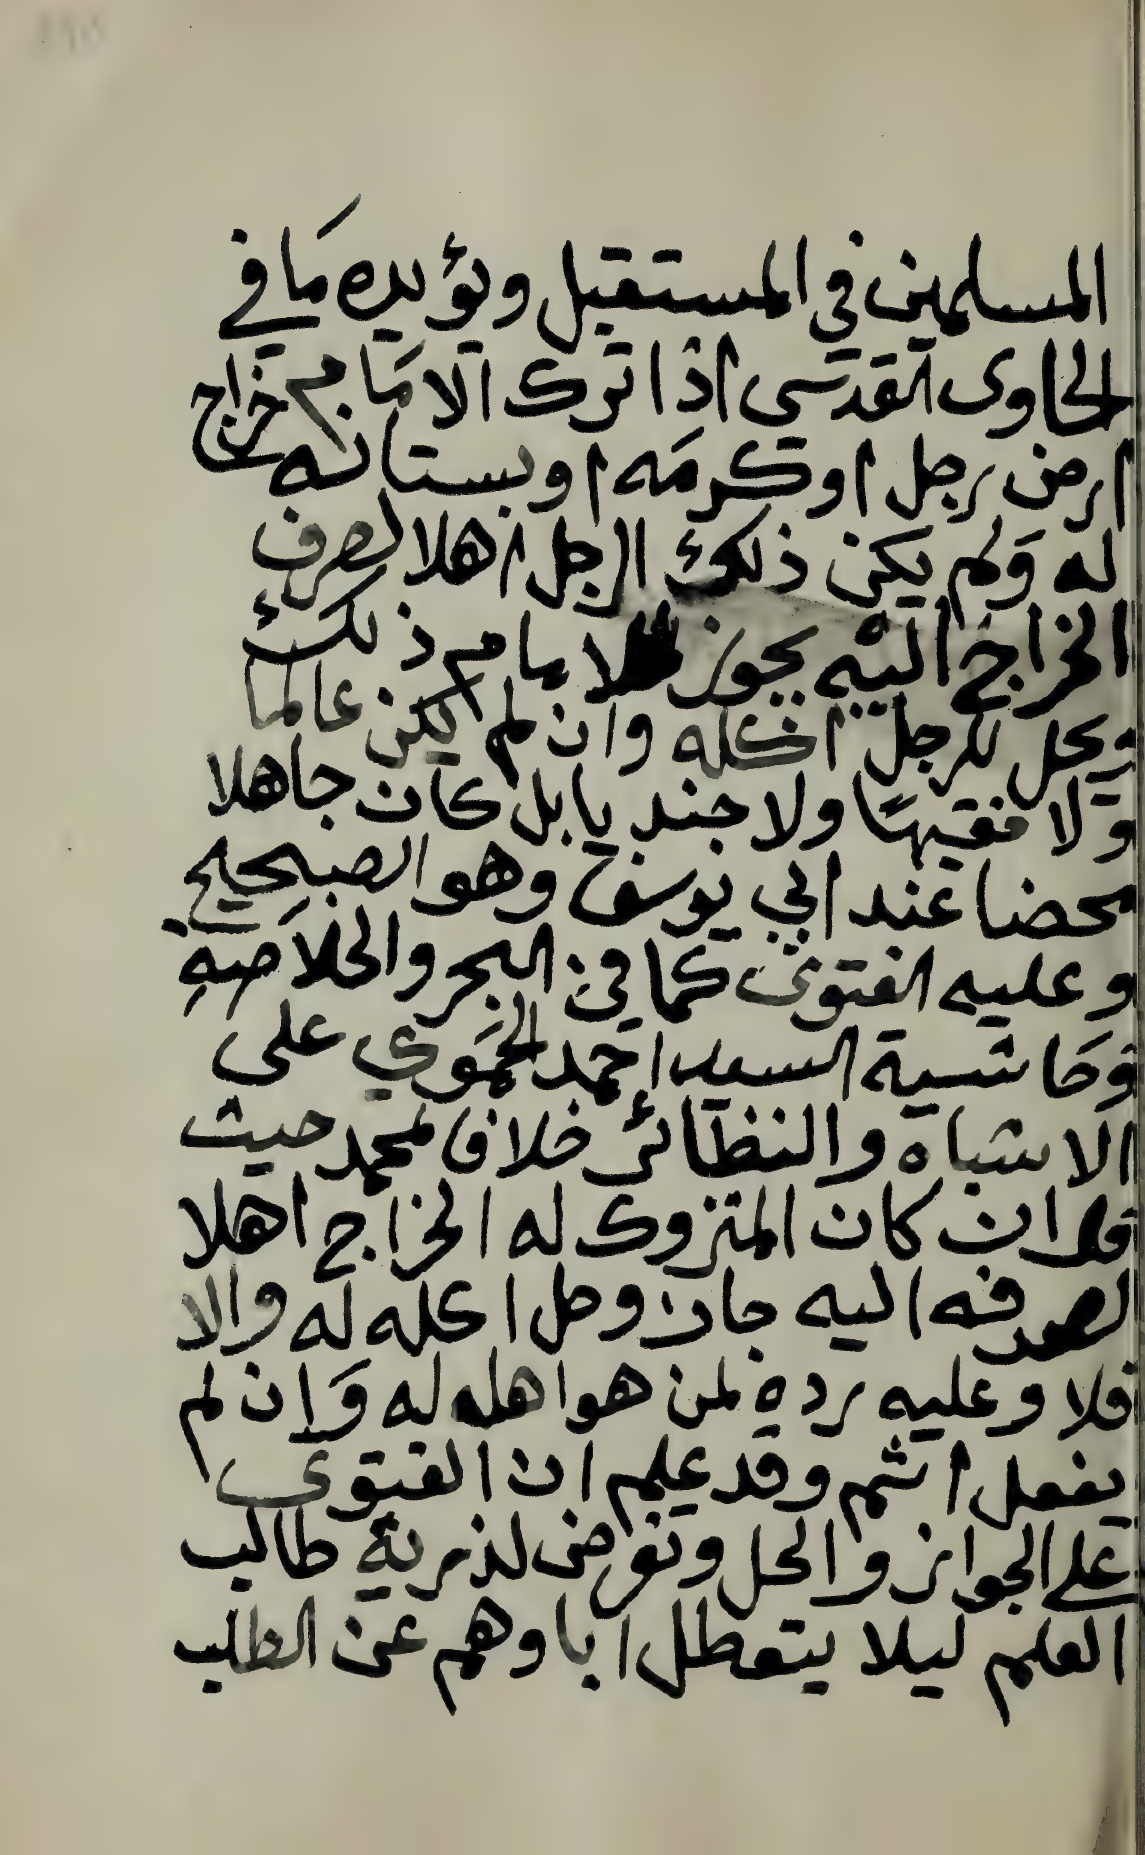 المسلمين في المستقبل ويؤيده ما في
الحاوى القدسى اذا ترك الامام خراج
ارض رجل او كرمه او بستانه
له ولم يكن ذلك الرجل اهلا لصرف
الخراج اليه يجوز للامام ذلك
ويحل للرجل اكله وان لم يكن عالما
ولا فقيها ولا جنديا بل كان جاهلا
محضا عند ابي يوسف وهو الصحيح
وعليه الفتوى كما في البحر والخلاصة
وحاشية السيد احمد الحموي على
الاشباه والنظائر خلاف لمحمد حيث
قال ان كان المتروك له الخراج اهلا
لصرفه اليه جاز وحل اكله له والا
فلا وعليه رده لمن هو اهله له وان لم
يفعل اثم وقد علم ان الفتوى
على الجواز والحل ونفرض لذرية طالب
العلم ليلا يتعطل اباوهم عن الطلب